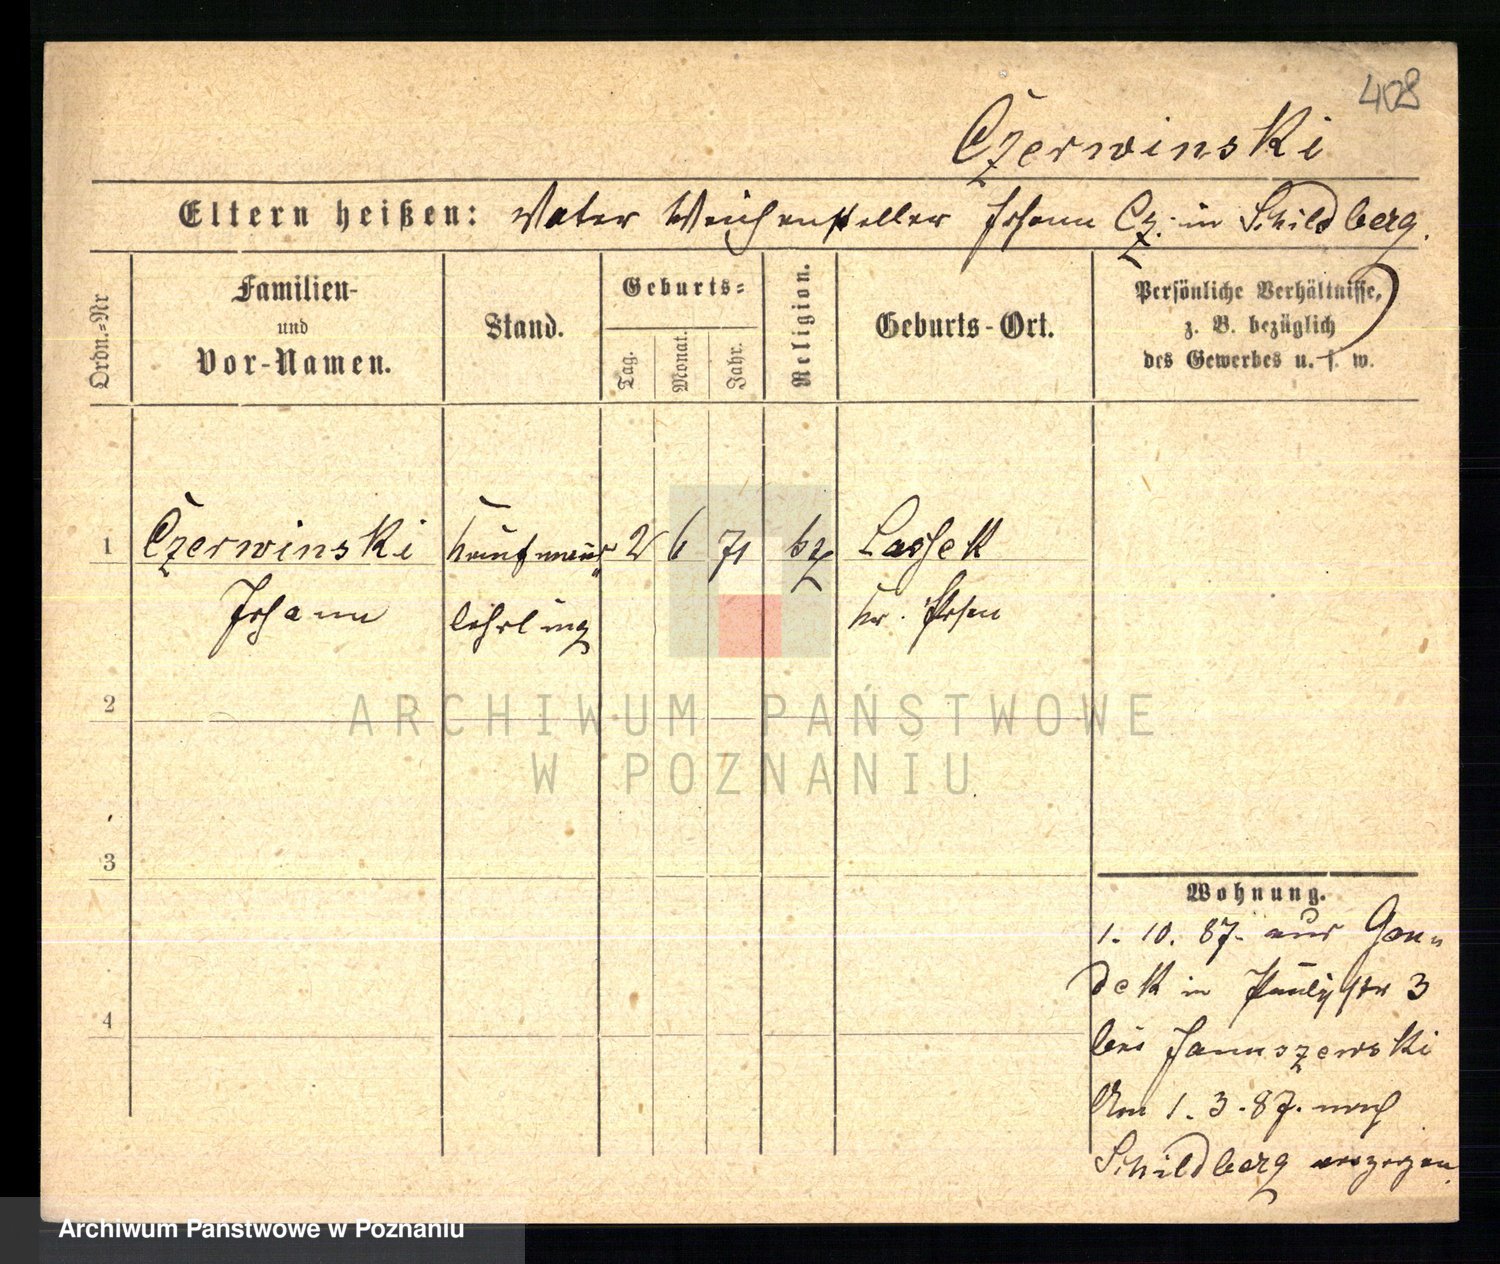 408
Czerwinski
Eltern heißen: Vater Weichensteller Johann Cz. in Schildberg.
Ordn.=Nr
Familien-
und
Vor-Namen.
Stand.
Geburts=
Tag.
Monat.
Jahr.
Religion.
Geburts-Ort.
Persönliche Verhältnisse,
z. B. bezüglich
des Gewerbes u. s. w.
1 Czerwinski Kaufmanns 2 6 71 Lassek
Johann lehrling Kr. Posen
2
ARCHIWUM PAŃSTWOWE
W POZNANIU
3
Wohnung.
1. 10. 87. aus Gon„
dek in Paulistr 3
4
bei Januszewski
1. 3. 87. nach
Schildberg verzogen.
Archiwum Państwowe w Poznaniu